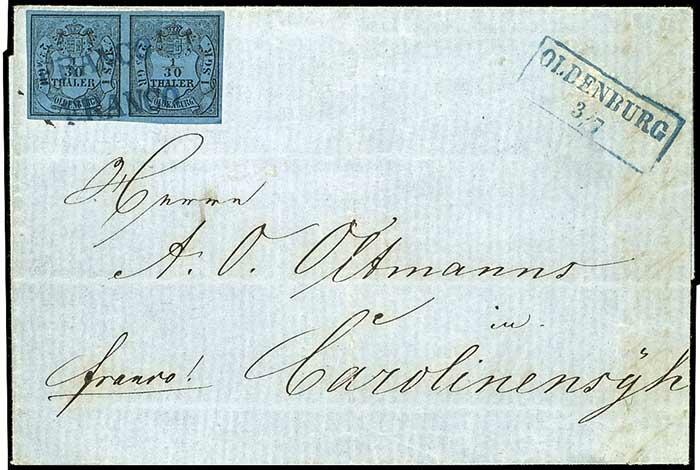 FRANCO
FRANCO
1
30
THALER
OLDENBURG
1
30
THALER
OLDENBURG
OLDENBURG
3/7
Herrn
A. O. Oltmanns
in
franco! Carolinensyhl